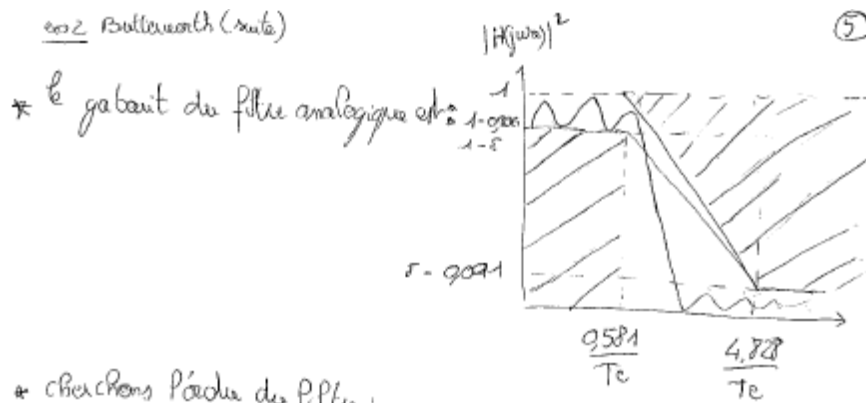 exo2 Butterworth (suite)
⑤
|H(jωa)|²
1
* le gabarit du filtre analogique est :
1-δ
δ = 0,001
0,581
Te
4,828
Te
* cherchons l'ordre du filtre :